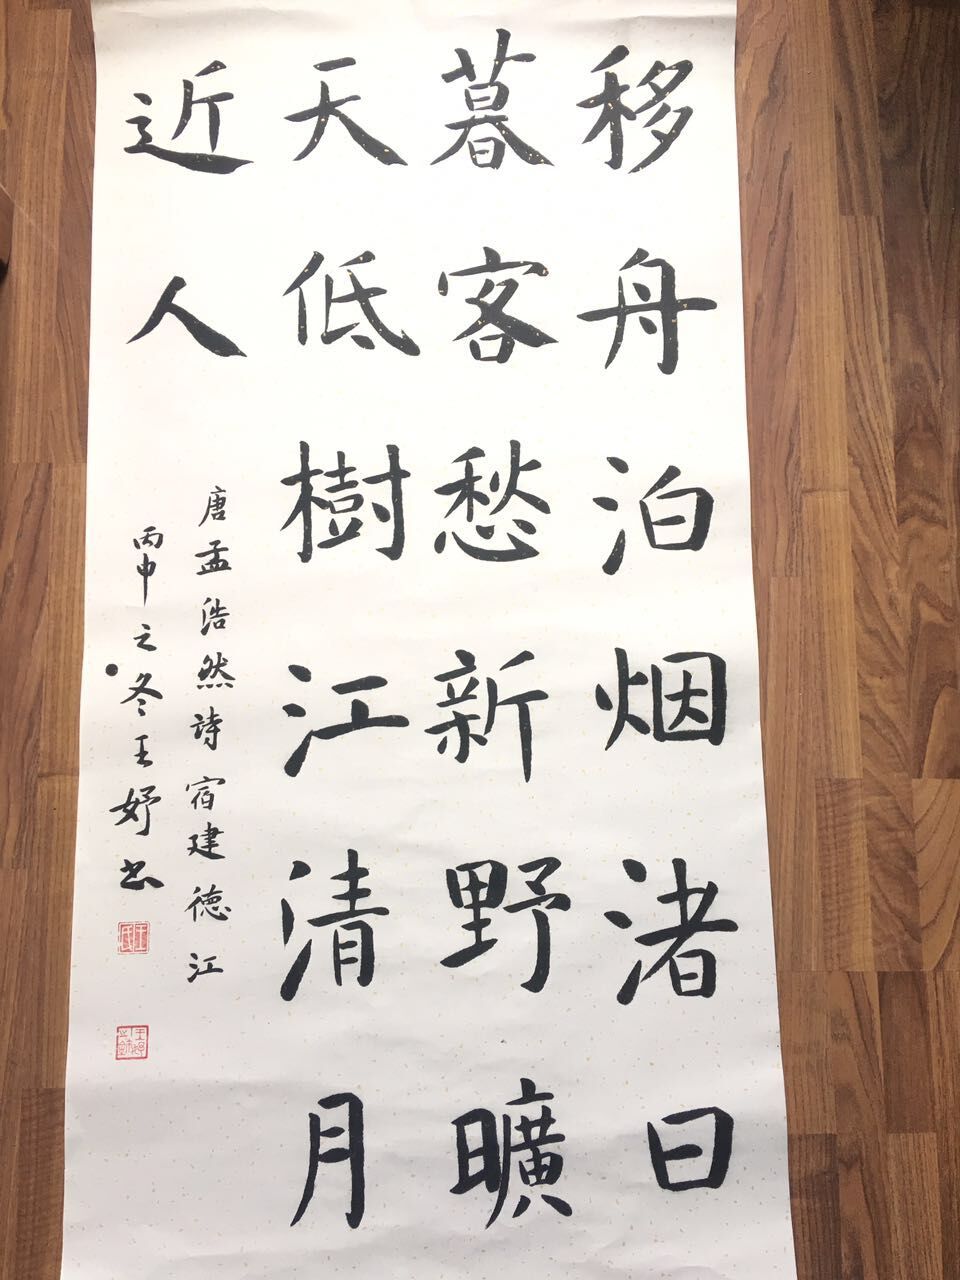 移舟泊烟渚日
暮客愁新野曠
天低樹江清月
近人
唐孟浩然詩宿建德江
丙申之冬王妤书